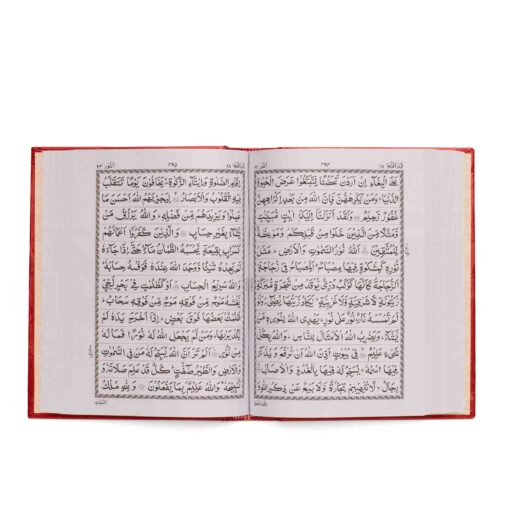 قد افلح ١٨
عَلَى الْبِغَآءِ اِنْ اَرَدْنَ تَحَصُّنًا لِّتَبْتَغُوْا عَرَضَ الْحَیٰوةِ
الدُّنْیَا ؕ وَمَنْ یُّكْرِهْهُّنَّ فَاِنَّ اللّٰهَ مِنْۢ بَعْدِ اِكْرَاهِهِنَّ
غَفُوْرٌ رَّحِیْمٌ ۝ وَلَقَدْ اَنْزَلْنَاۤ اِلَیْكُمْ اٰیٰتٍ مُّبَیِّنٰتٍ
وَّمَثَلًا مِّنَ الَّذِیْنَ خَلَوْا مِنْ قَبْلِكُمْ وَمَوْعِظَةً
لِّلْمُتَّقِیْنَ ۝ اَللّٰهُ نُوْرُ السَّمٰوٰتِ وَالْاَرْضِ ؕ مَثَلُ
نُوْرِهٖ كَمِشْكٰوةٍ فِیْهَا مِصْبَاحٌ ؕ اَلْمِصْبَاحُ فِیْ زُجَاجَةٍ ؕ
اَلزُّجَاجَةُ كَاَنَّهَا كَوْكَبٌ دُرِّیٌّ یُّوْقَدُ مِنْ شَجَرَةٍ مُّبٰرَكَةٍ
زَیْتُوْنَةٍ لَّا شَرْقِیَّةٍ وَّلَا غَرْبِیَّةٍ ۙ یَّكَادُ زَیْتُهَا یُضِیْٓءُ وَلَوْ
لَمْ تَمْسَسْهُ نَارٌ ؕ نُوْرٌ عَلٰى نُوْرٍ ؕ یَهْدِی اللّٰهُ لِنُوْرِهٖ مَنْ
یَّشَآءُ ؕ وَیَضْرِبُ اللّٰهُ الْاَمْثَالَ لِلنَّاسِ ؕ وَاللّٰهُ بِكُلِّ
شَیْءٍ عَلِیْمٌ ۝ فِیْ بُیُوْتٍ اَذِنَ اللّٰهُ اَنْ تُرْفَعَ وَیُذْكَرَ
فِیْهَا اسْمُهٗ ۙ یُسَبِّحُ لَهٗ فِیْهَا بِالْغُدُوِّ وَالْاٰصَالِ ۝
رِجَالٌ ۙ لَّا تُلْهِیْهِمْ تِجَارَةٌ وَّلَا بَیْعٌ عَنْ ذِكْرِ اللّٰهِ وَ
النور ٢٤
اِقَامِ الصَّلٰوةِ وَاِیْتَآءِ الزَّكٰوةِ ۙ یَخَافُوْنَ یَوْمًا تَتَقَلَّبُ
فِیْهِ الْقُلُوْبُ وَالْاَبْصَارُ ۝ لِیَجْزِیَهُمُ اللّٰهُ اَحْسَنَ مَا
عَمِلُوْا وَیَزِیْدَهُمْ مِّنْ فَضْلِهٖ ؕ وَاللّٰهُ یَرْزُقُ مَنْ
یَّشَآءُ بِغَیْرِ حِسَابٍ ۝ وَالَّذِیْنَ كَفَرُوْۤا اَعْمَالُهُمْ
كَسَرَابٍۭ بِقِیْعَةٍ یَّحْسَبُهُ الظَّمْاٰنُ مَآءً ؕ حَتّٰۤى اِذَا جَآءَهٗ
لَمْ یَجِدْهُ شَیْـًٔا وَّوَجَدَ اللّٰهَ عِنْدَهٗ فَوَفّٰىهُ حِسَابَهٗ ؕ
وَاللّٰهُ سَرِیْعُ الْحِسَابِ ۝ اَوْ كَظُلُمٰتٍ فِیْ بَحْرٍ لُّجِّیٍّ
یَّغْشٰىهُ مَوْجٌ مِّنْ فَوْقِهٖ مَوْجٌ مِّنْ فَوْقِهٖ سَحَابٌ ؕ
ظُلُمٰتٌۢ بَعْضُهَا فَوْقَ بَعْضٍ ؕ اِذَاۤ اَخْرَجَ یَدَهٗ لَمْ
یَكَدْ یَرٰىهَا ؕ وَمَنْ لَّمْ یَجْعَلِ اللّٰهُ لَهٗ نُوْرًا فَمَا لَهٗ
مِنْ نُّوْرٍ ۝ اَلَمْ تَرَ اَنَّ اللّٰهَ یُسَبِّحُ لَهٗ مَنْ فِی السَّمٰوٰتِ
وَالْاَرْضِ وَالطَّیْرُ صٰٓفّٰتٍ ؕ كُلٌّ قَدْ عَلِمَ صَلَاتَهٗ وَ
تَسْبِیْحَهٗ ؕ وَاللّٰهُ عَلِیْمٌۢ بِمَا یَفْعَلُوْنَ ۝ وَلِلّٰهِ مُلْكُ